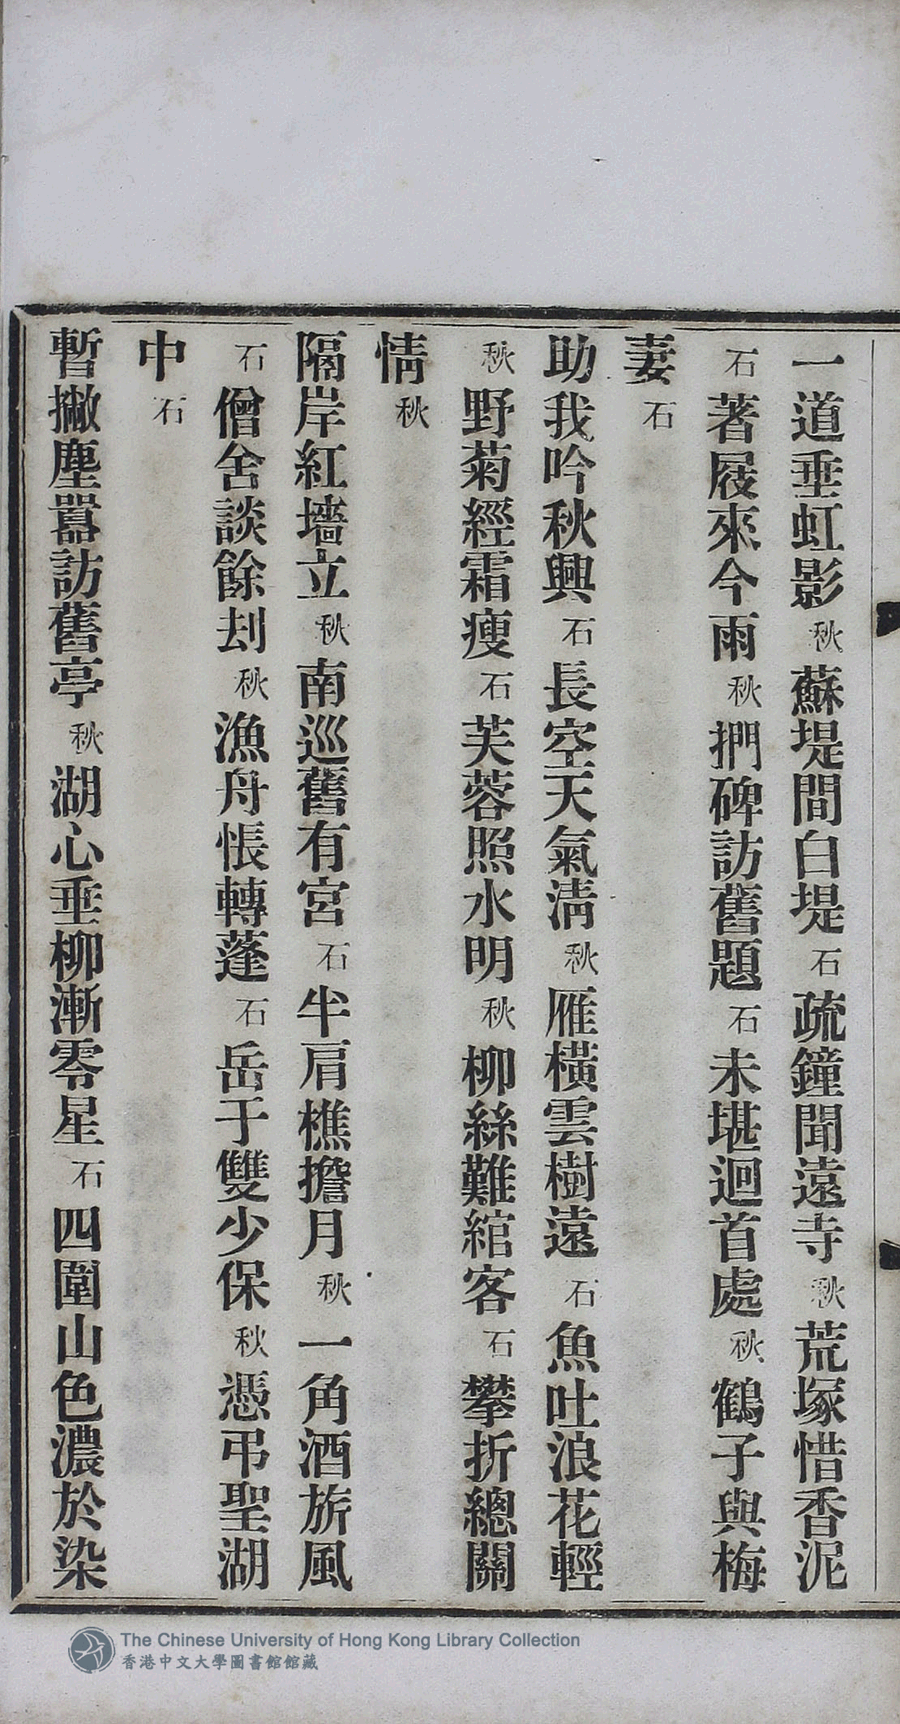 一道垂虹影秋蘇堤間白堤石疏鐘聞遠寺秋荒塚惜香泥
石著屐來今雨秋捫碑訪舊題石未堪迴首處秋鶴子與梅
妻石
助我吟秋興石長空天氣淸秋雁橫雲樹遠石魚吐浪花輕
秋野菊經霜瘦石芙蓉照水明秋柳絲難綰客石攀折總關
情秋
隔岸紅墻立秋南巡舊有宮石半肩樵擔月秋一角酒旂風
石僧舍談餘刦秋漁舟悵轉蓬石岳于雙少保秋憑弔聖湖
中石
暫撇塵囂訪舊亭秋湖心垂柳漸零星石四圍山色濃於染
The Chinese University of Hong Kong Library Collection
香港中文大學圖書館館藏